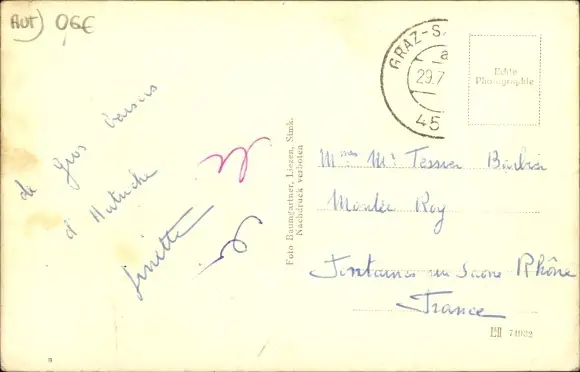 AUT) 06€
GRAZ-S
a
29.7
45
Echte
Photographie
de Gros baisers
d'Autriche
Ginette
Foto Baumgartner, Liezen, Stmk.
Nachdruck verboten
Tessier Barbier
Montée Roy
Fontaines sur Saône Rhône
France
74932